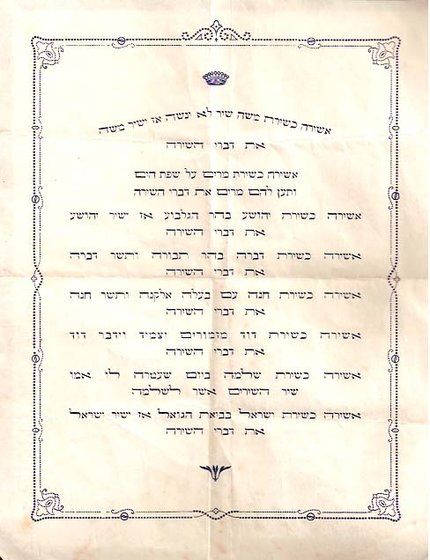 אשירה כשירת משה שיר לא ינשה אז ישיר משה
את דברי השירה
אשירה כשירת מרים על שפת הים
ותען להם מרים את דברי השירה
אשירה כשירת יהושע בהר הגלבוע אז ישיר יהושע
את דברי השירה
אשירה כשירת דברה בהר תבורה ותשר דברה
את דברי השירה
אשירה כשירת חנה עם בעלה אלקנה ותשר חנה
את דברי השירה
אשירה כשירת דוד מזמורים יצמיד וידבר דוד
את דברי השירה
אשירה כשירת שלמה ביום שעטרה לו אמו
שיר השירים אשר לשלמה
אשירה כשירת ישראל בביאת הגואל אז ישיר ישראל
את דברי השירה